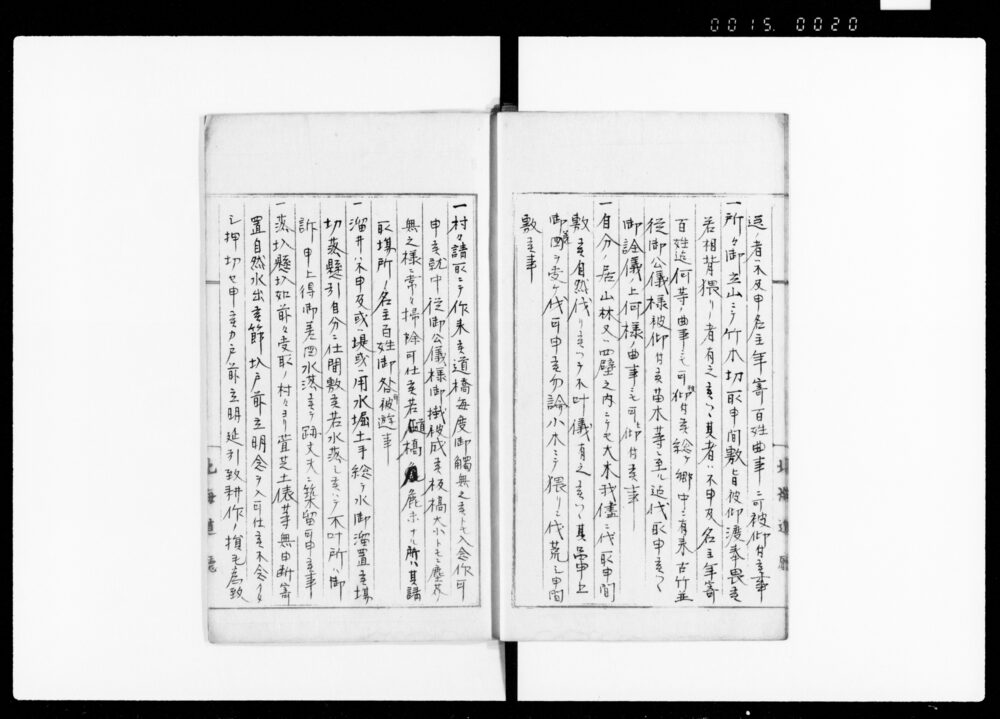 0015. 0020
迄ノ者ハ不及申名主年寄百姓曲事ニ可被仰付候事
一所々御立山ニテ竹木切取申間敷旨被仰渡奉畏候
若相背猥リノ者有之候ハヽ其者ハ不申及名主年寄
百姓迄何等ノ曲事ニモ可被仰付候総テ郷中ニ有来古竹並
従御公儀様被仰付候苗木等ニ至ル迄伐取申候ハヽ
御詮儀ノ上何様ノ曲事ニモ可被仰付候事
一自分ノ居山林又ハ四壁之内ニテモ大木我儘ニ伐取申間
敷候自然伐リ候ハテ不叶儀有之候ハヽ其品申上
御差図ヲ受ケ伐可申候勿論小木ニテ猥リニ伐荒シ申間
敷候事
一村々請取ニテ作来候道橋毎度御触無之候トモ入念作可
申候就中従御公儀様御掛被成候板橋大小トモニ塵芥
無之様ニ常々掃除可仕候若橋麁末ナル所ハ其請
取場所ノ名主百姓御咎可被遊事
一溜井ハ不申及或ハ堤或ハ用水堀土手総テ水御溜置候場
切落懸引自分ニ仕間敷候若水落シ候ハテ不叶所ハ御
訴申上得御差図水落候テ跡丈夫ニ築留可申候事
一落圦懸圦如前々受取ノ村々ヨリ萱芝土俵等無由断寄
置自然水出候節圦戸前立明念ヲ入可仕候不念
シ押切セ申候カ戸前立明延引致耕作ノ損毛為致
北海道庁
北海道庁